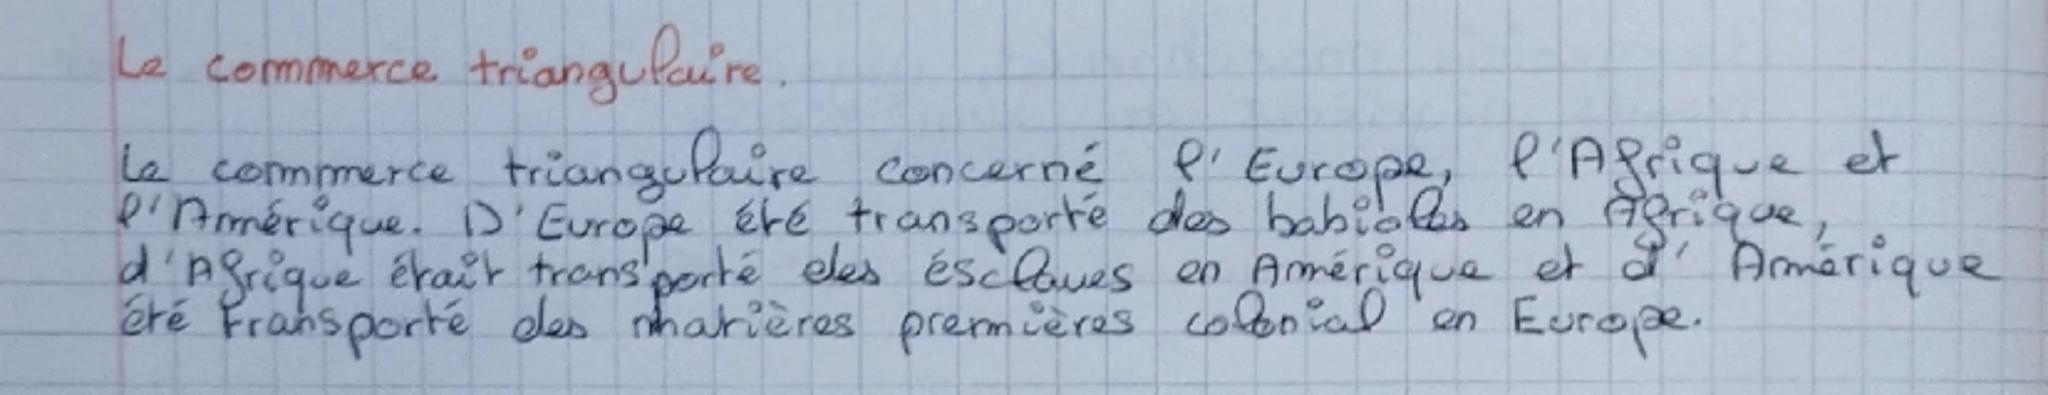 Le commerce triangulaire.
Le commerce triangulaire concerné l'Europe, l'Afrique et
l'Amérique. D'Europe été transporté des babioles en Afrique,
d'Afrique était transporté des ésclaves en Amérique et d'Amérique
été transporté des matières premières colonial en Europe.